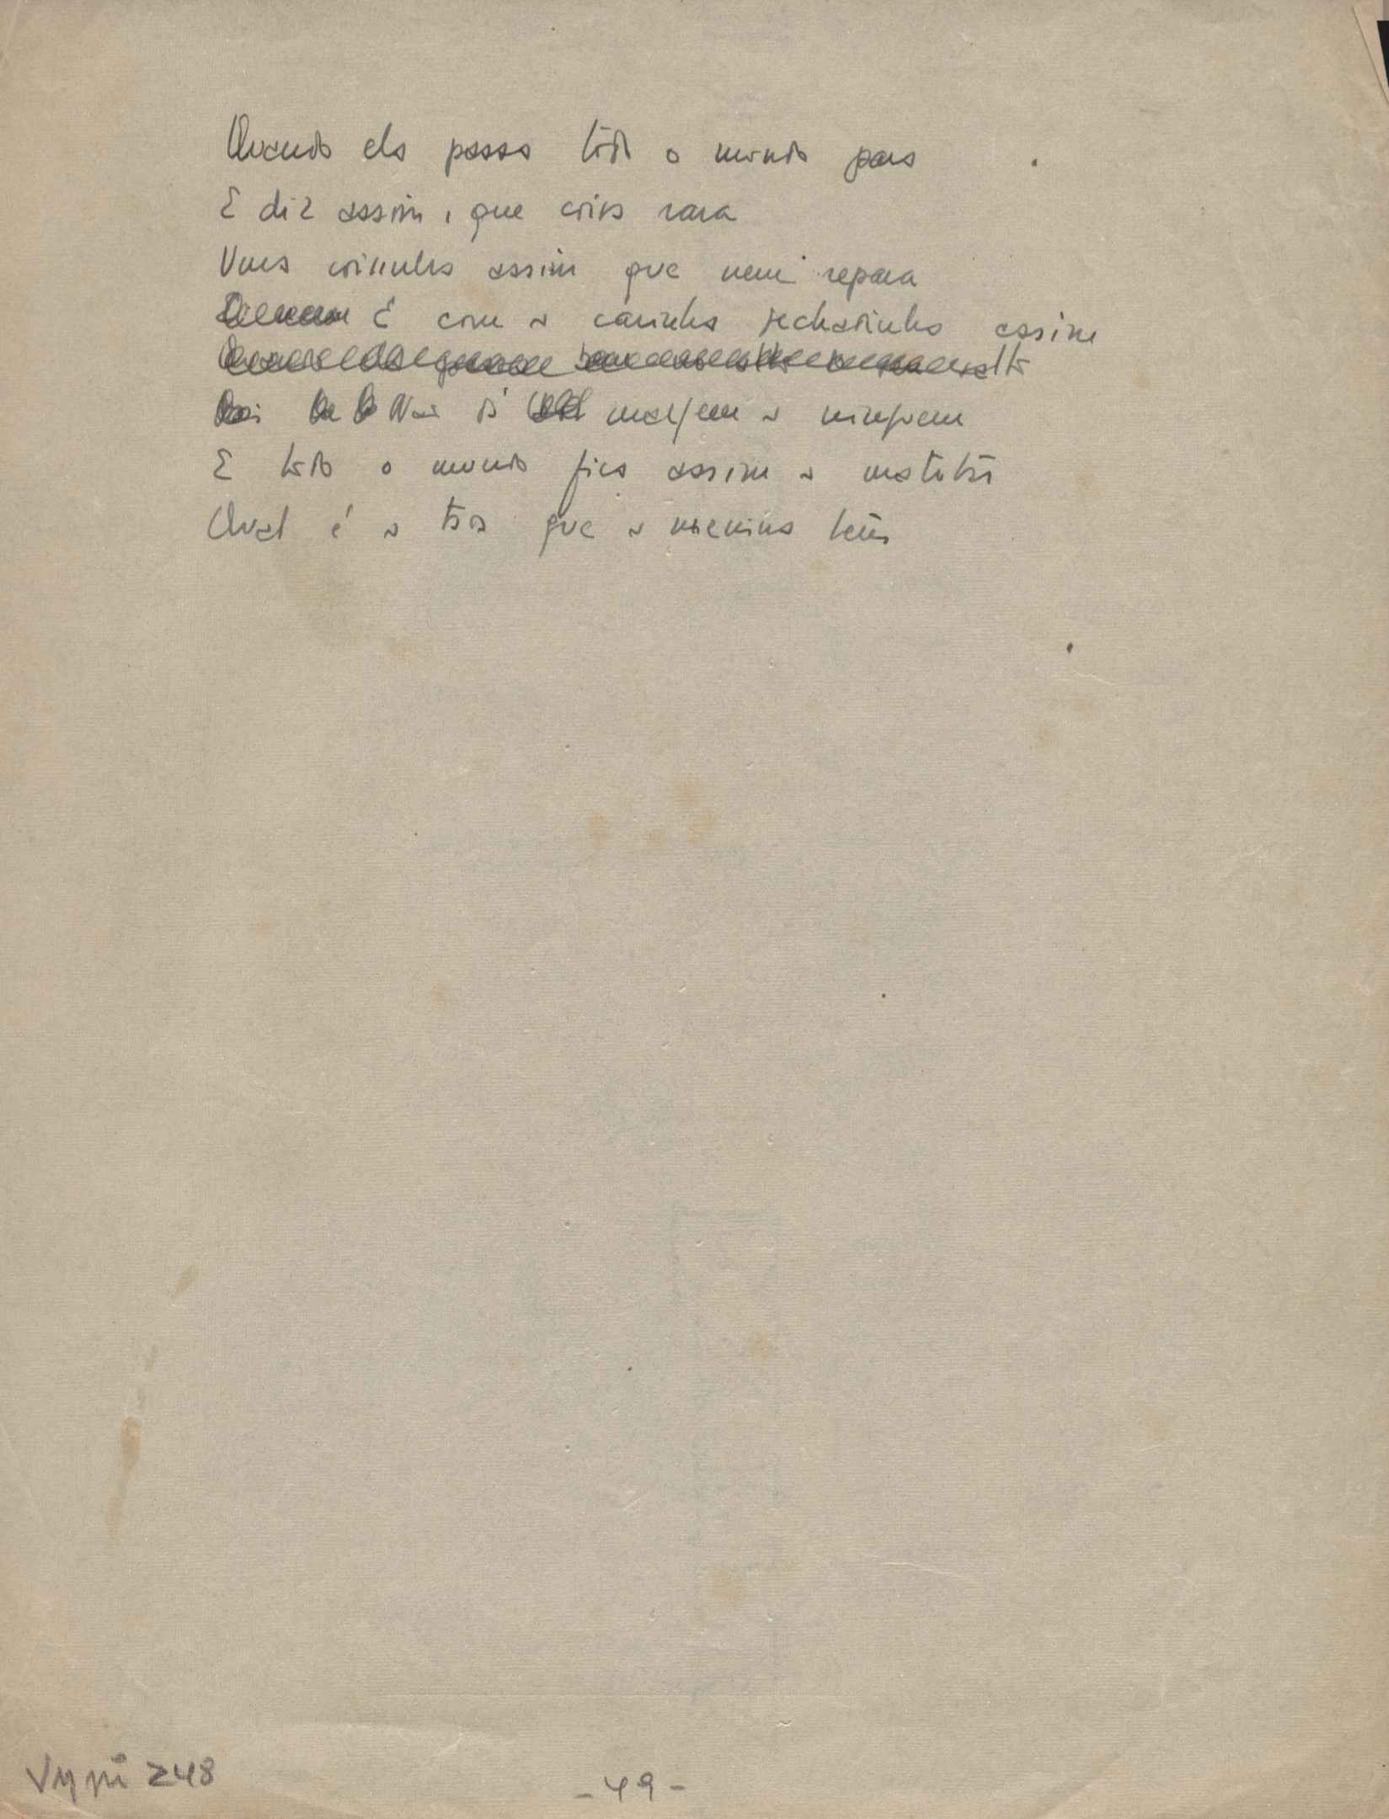 Quando ela passa todo o mundo para
E diz assim, que coisa rara
Uma coisinha assim que nem repara
E com a carinha fechadinha assim
Não dá margem a ninguém
E todo o mundo fica assim a matutar
Qual é a que a menina tem
Vm pi 248
- 49 -